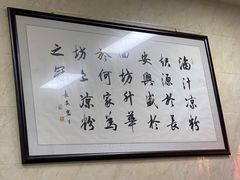 滷汁凉粉
起源於長
安興盛於
回坊升華
於何家為
坊上凉粉
之冠